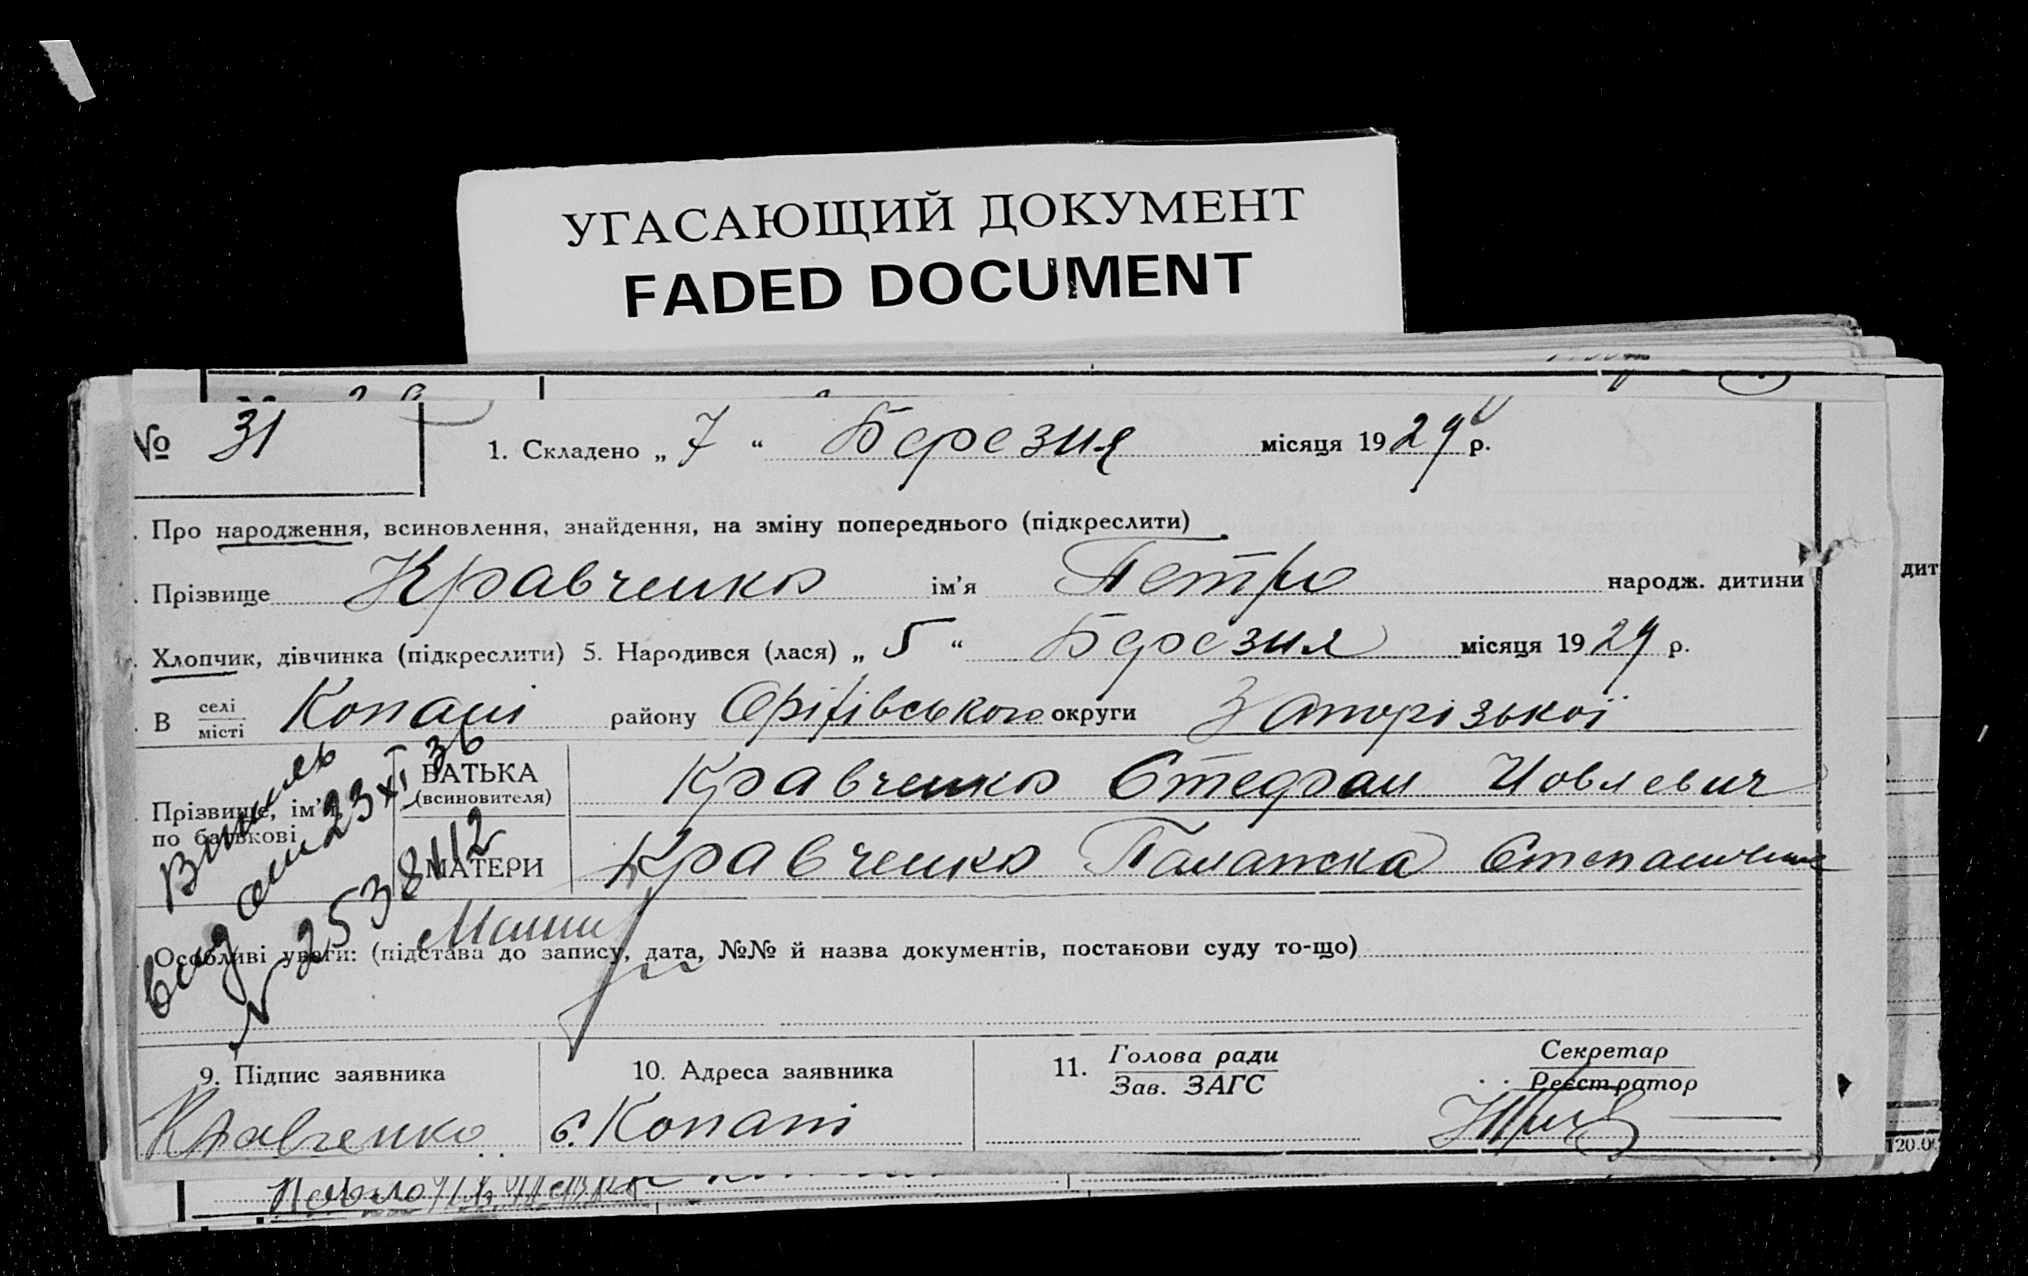 УГАСАЮЩИЙ ДОКУМЕНТ
FADED DOCUMENT
№ 31
1. Складено „ 7 “ Березня місяця 1929 р.
Про народження, всиновлення, знайдення, на зміну попереднього (підкреслити)
Прізвище Кравченко ім'я Петро народж. дитини
дит
Хлопчик, дівчинка (підкреслити) 5. Народився (лася) „ 5 “ Березня місяця 1929 р.
В селі місті Копані району Оріхівського округи Запорізької
Прізвище, ім'я, по батькові
БАТЬКА (всиновителя) Кравченко Стефан Иовлевич
МАТЕРИ Кравченко Палажка Степановна
Выпись выдана 23 XI 36
№ 2538112
Особливі уваги: (підстава до запису, дата, №№ й назва документів, постанови суду то-що)
9. Підпис заявника
10. Адреса заявника
11. Голова ради
Зав. ЗАГС
Секретар
Реєстратор
Кравченко
с. Копані
120.0